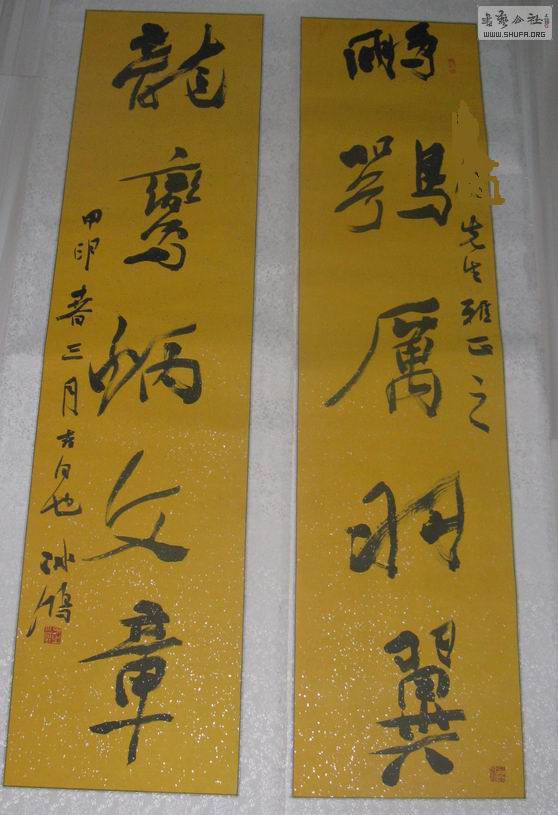 書藝公社
WWW.SHUFA.ORG
先生雅正之
鵬鶚厲羽翼
龍鸞炳文章
甲申春三月吉日也